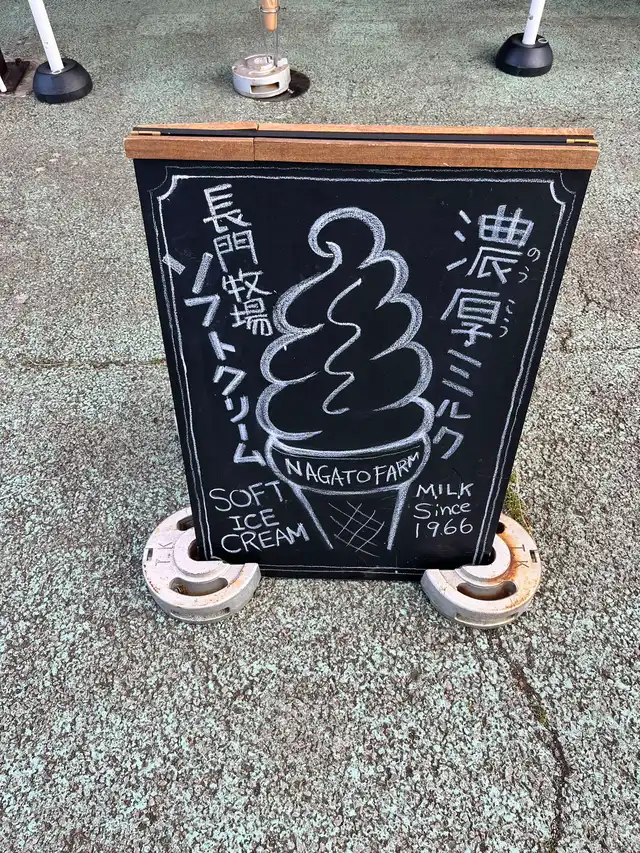 濃厚ミルク
のうこう
長門牧場
ソフトクリーム
NAGATO FARM
SOFT
ICE
CREAM
MILK
Since
1966
T-K
T-K